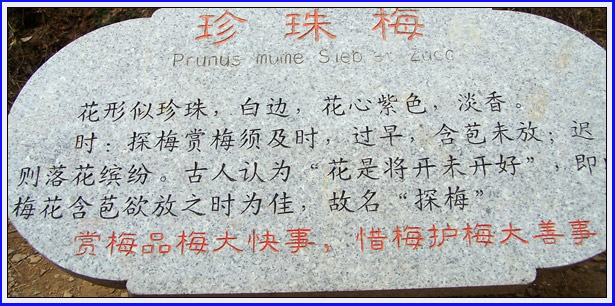 珍珠梅
Prunus mume Sieb et Zucc
花形似珍珠，白边，花心紫色，淡香。
时：探梅赏梅须及时，过早，含苞未放；迟
则落花缤纷。古人认为“花是将开未开好”，即
梅花含苞欲放之时为佳，故名“探梅”
赏梅品梅大快事，惜梅护梅大善事